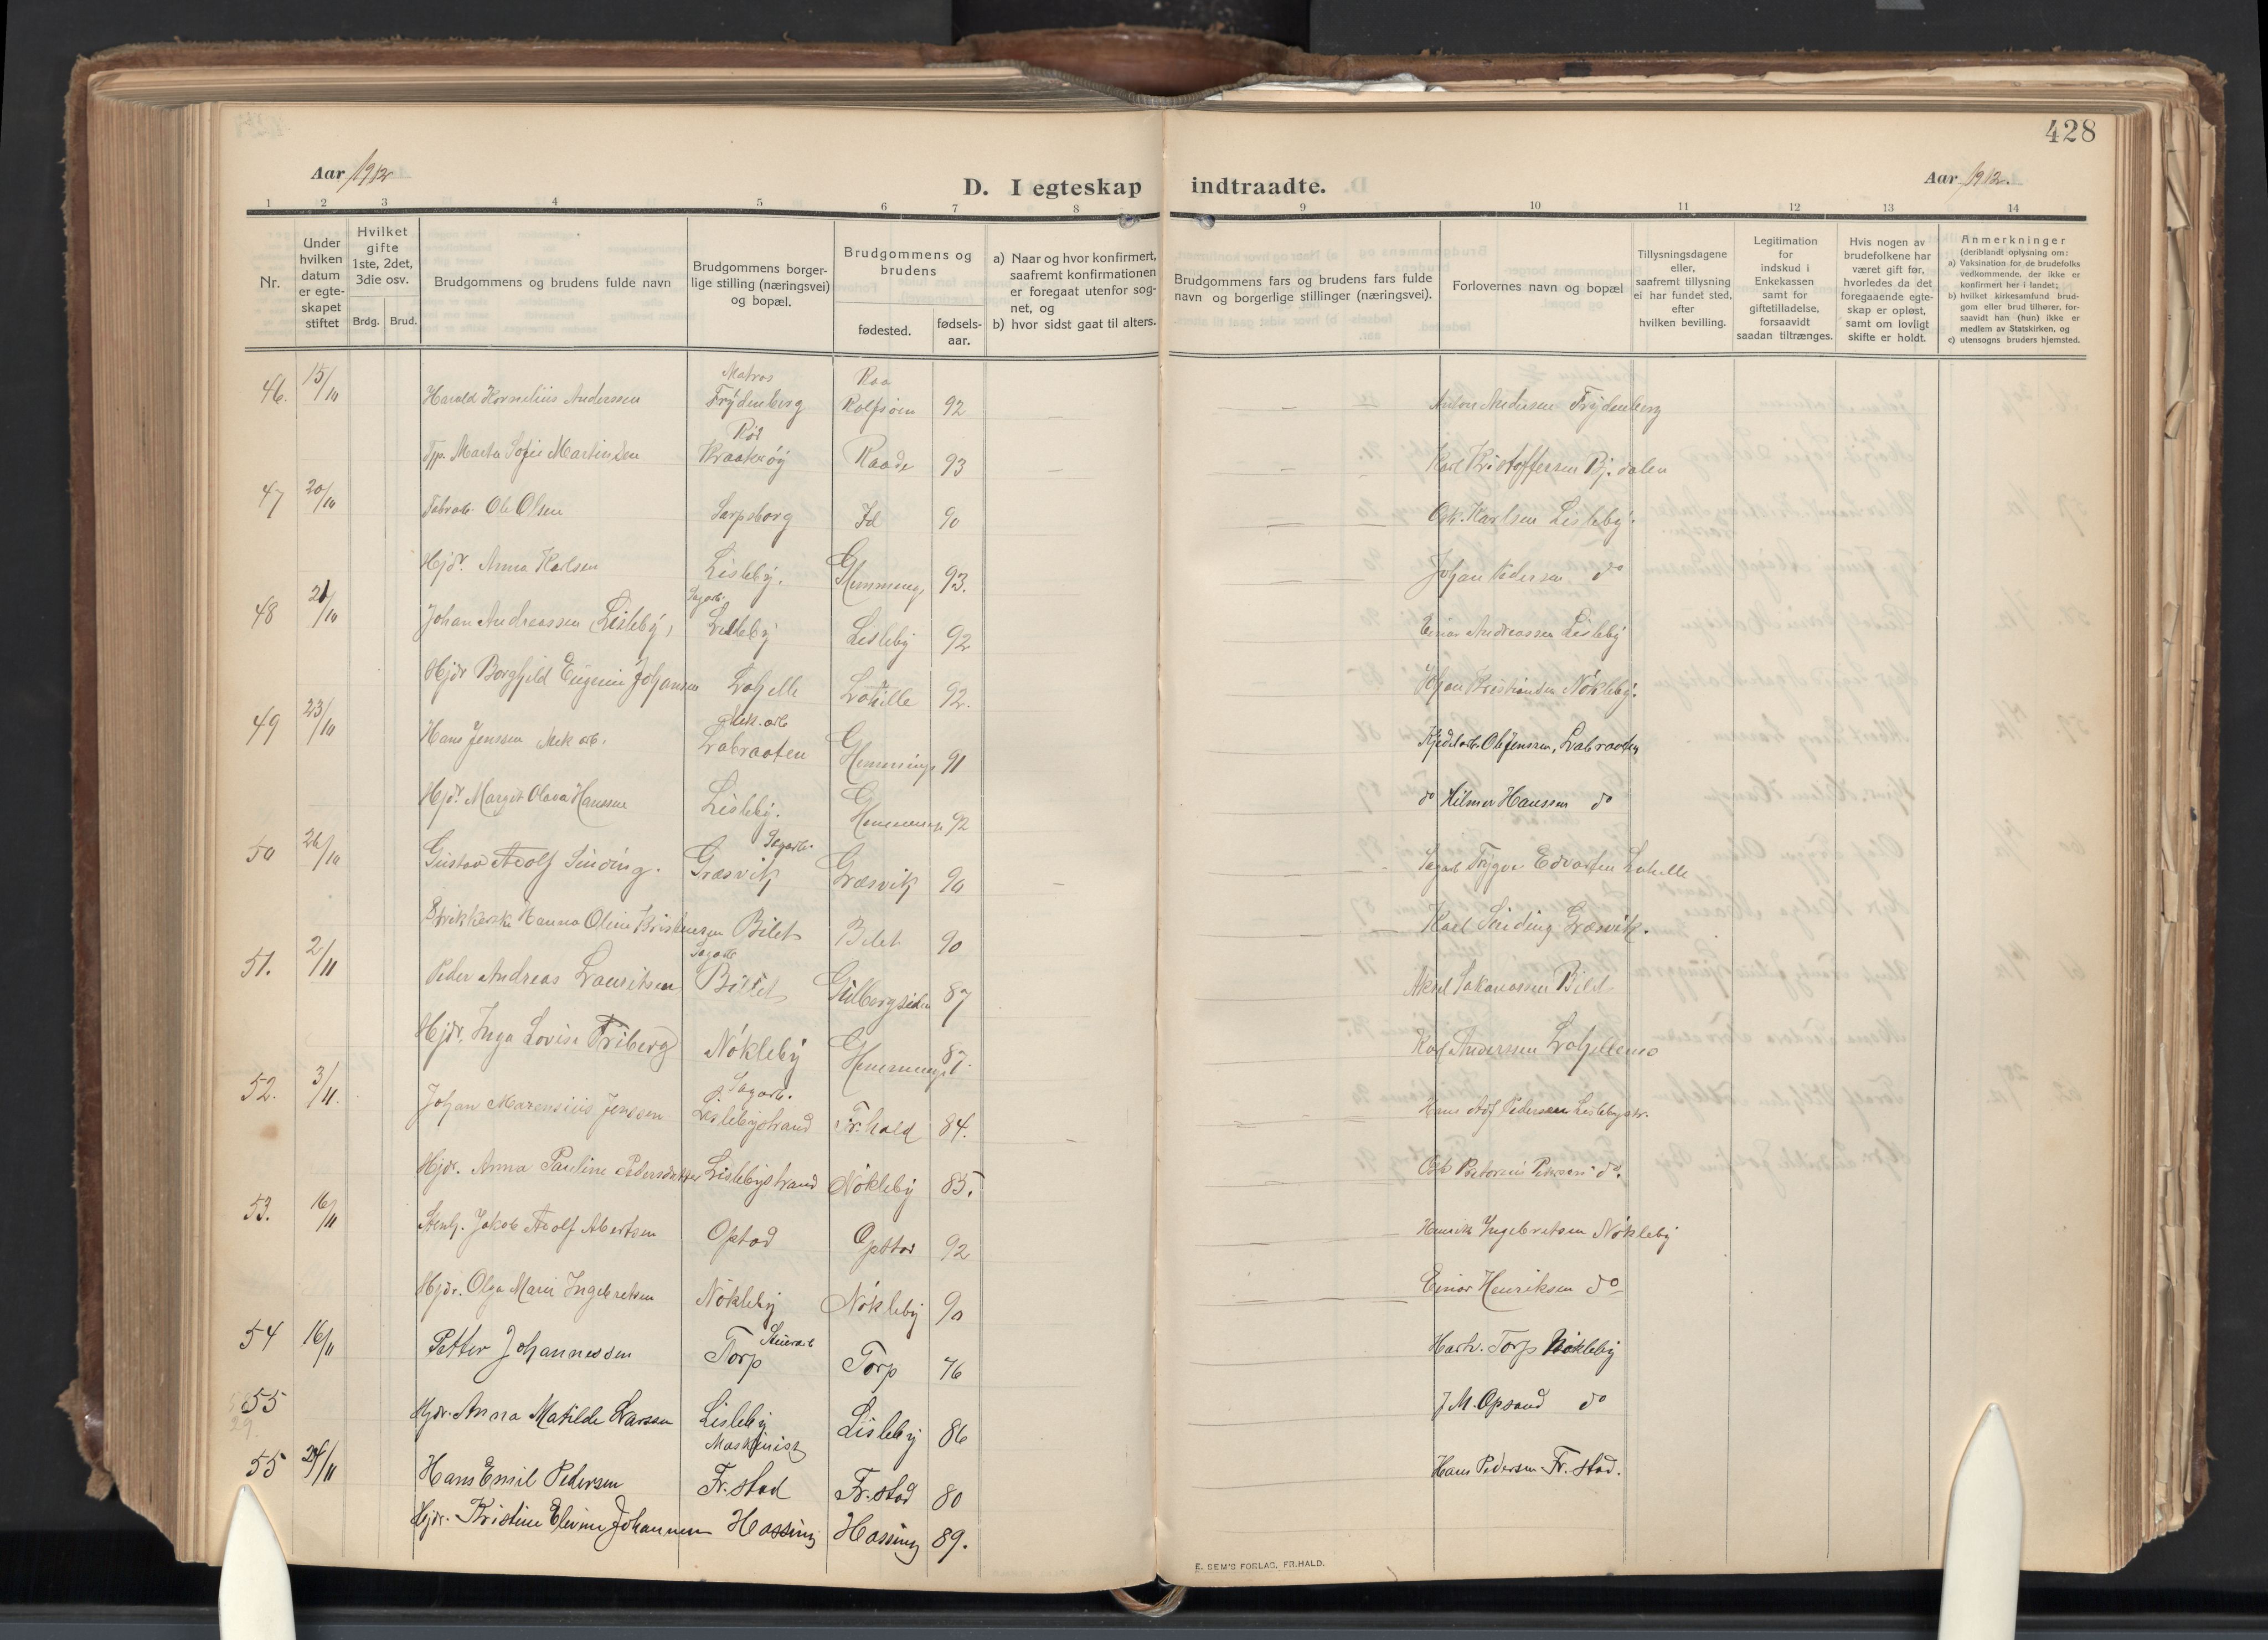 428
Aar 1912
D. I egteskap indtraadte.
Aar 1912.
1 2 3 4 5 6 7 8 9 10 11 12 13 14
Nr.
Under hvilken datum er egte-skapet stiftet
Hvilket gifte 1ste, 2det, 3die osv.
Brdg. Brud.
Brudgommens og brudens fulde navn
Brudgommens borger-lige stilling (næringsvei) og bopæl.
Brudgommens og brudens
fødested.
fødsels-aar.
a) Naar og hvor konfirmert, saafremt konfirmationen er foregaat utenfor sog-net, og
b) hvor sidst gaat til alters.
Brudgommens fars og brudens fars fulde navn og borgerlige stillinger (næringsvei).
Forlovernes navn og bopæl
Tillysningsdagene eller, saafremt tillysning ei har fundet sted, efter hvilken bevilling.
Legitimation for indskud i Enkekassen samt for giftetilladelse, forsaavidt saadan tiltrænges.
Hvis nogen av brudefolkene har været gift før, hvorledes da det foregaaende egte-skap er opløst, samt om lovligt skifte er holdt.
Anmerkninger
(deriblandt oplysning om:
a) Vaksination for de brudefolks vedkommende, der ikke er konfirmert her i landet;
b) hvilket kirkesamfund brud-gom eller brud tilhører, for-saavidt han (hun) ikke er medlem av Statskirken, og
c) utensogns bruders hjemsted.
46. 15/10 Harald Kornelius Anderssen Matros Frydenberg Rolfsøen 92 Anton Andersen Frydenberg
Tjp. Marta Sofie Martinsen Rød Kraakerøy Raade 93 Karl Kristoffersen Bj. dalen
47 20/10 Fabrab. Ole Olsen Sarpsborg Id 90 Osk. Karlsen Lisleby.
Hjdr. Anna Karlsen Lisleby. Glemminge 93. Johan Pedersen do
48 21/10 Johan Andreassen (Lisleby) Sagarb. Lisleby Lisleby 92 Einar Andreassen Lisleby
Hjdr Borghild Eugenie Johansen Lahelle Lahelle 92. Johan Kristiansen Nökleby.
49 23/10 Hans Jenssen Mek arb. Mek. arb Labraaten Glemminge 91 Kjedelarb. Ole Jenssen, Labraaten
Hjdr Margit Olava Hanssen Lisleby. Glemminge 92 do Hilmer Hanssen do
50 26/10 Gustav Adolf Sinding. Sagarb. Græsvik Græsvik 90 Sagarb Trygve Edvartsen Lahelle
Strikkerske Hanna Oline Kristiansen Bilet Bilet 90 Karl Sinding Græsvik.
51. 2/11 Peder Andreas Lauritsen Sagarb Bilet Gulbergsiden 87 Aksel Sakariassen Bilet
Hjdr. Inga Lovise Friberg Nökleby Glemminge 87. Karl Anderssen Lahellemo
52. 3/11. Johan Marensius Jenssen Sagarb. Lislebystrand Fr.hald 84. Hans Adf Pedersen Lislebystr.
Hjdr. Anna Pauline Pedersdatter Lislebystrand Nökleby 85. Osk Pedersen do.
53. 16/11 Stenh. Jakob Adolf Albertsen Opstad Opstad 92 Henrik Ingebretsen Nökleby
Hjdr. Olga Marie Ingebretsen Nökleby Nökleby 90 Einar Henriksen do
54 16/11 Petter Johannessen Torp Torp 76 Hartv. Torp Nökleby
55 Hjdr. Anna Matilde Larsen Lisleby Lisleby 86 J. M. Opsand do
55 24/11 Hans Emil Pedersen Maskinist Fr. stad Fr. stad 80 Hans Pedersen Fr. stad.
Hjdr. Kristine Elevine Johannessen Hassing Hassing 89.
E. SEM'S FORLAG, FR.HALD.